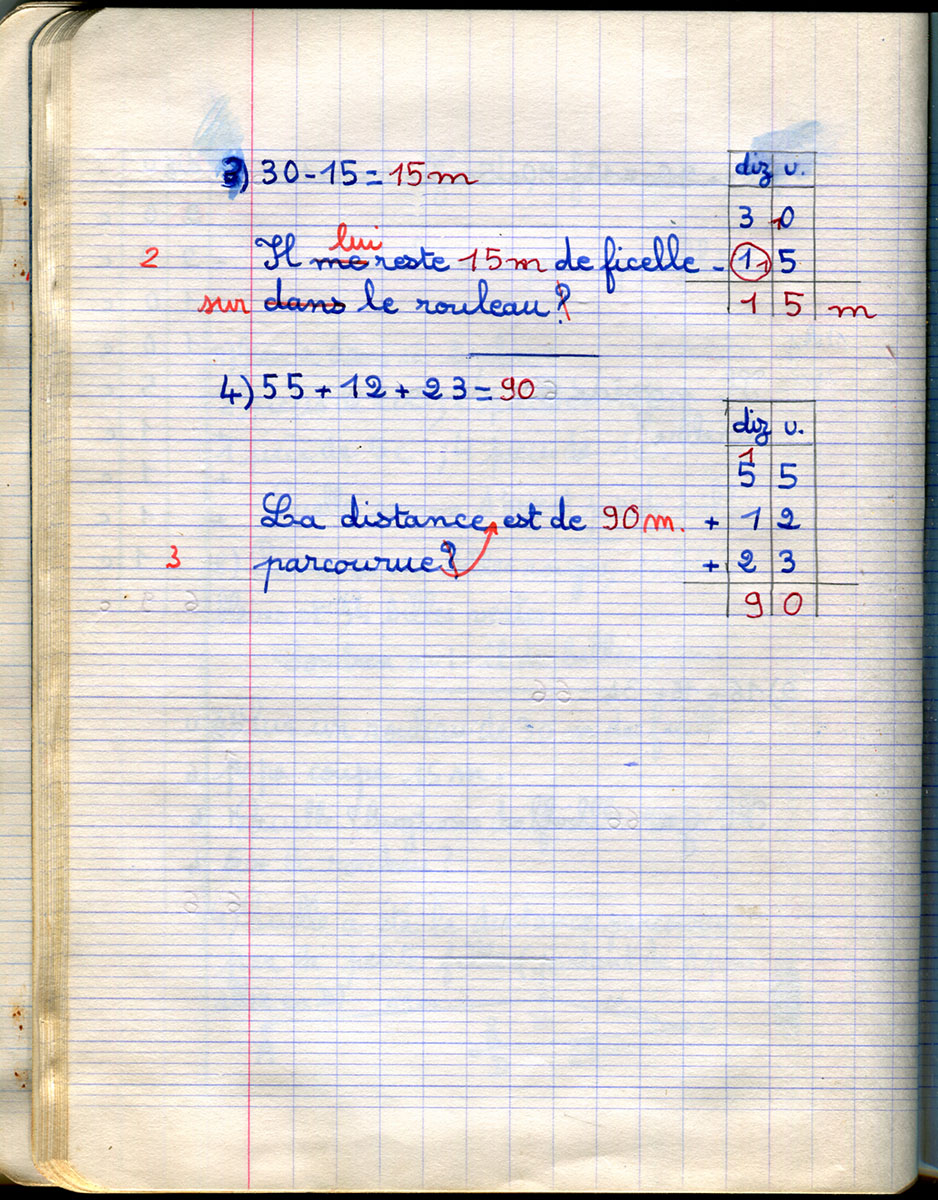 3) 30 - 15 = 15 m
diz u.
3 10
lui
2 Il me reste 15 m de ficelle - 11 5
sur dans le rouleau ? 1 5 m
4) 55 + 12 + 23 = 90
diz u.
1
5 5
La distance est de 90 m. + 1 2
3 parcourue ? + 2 3
9 0